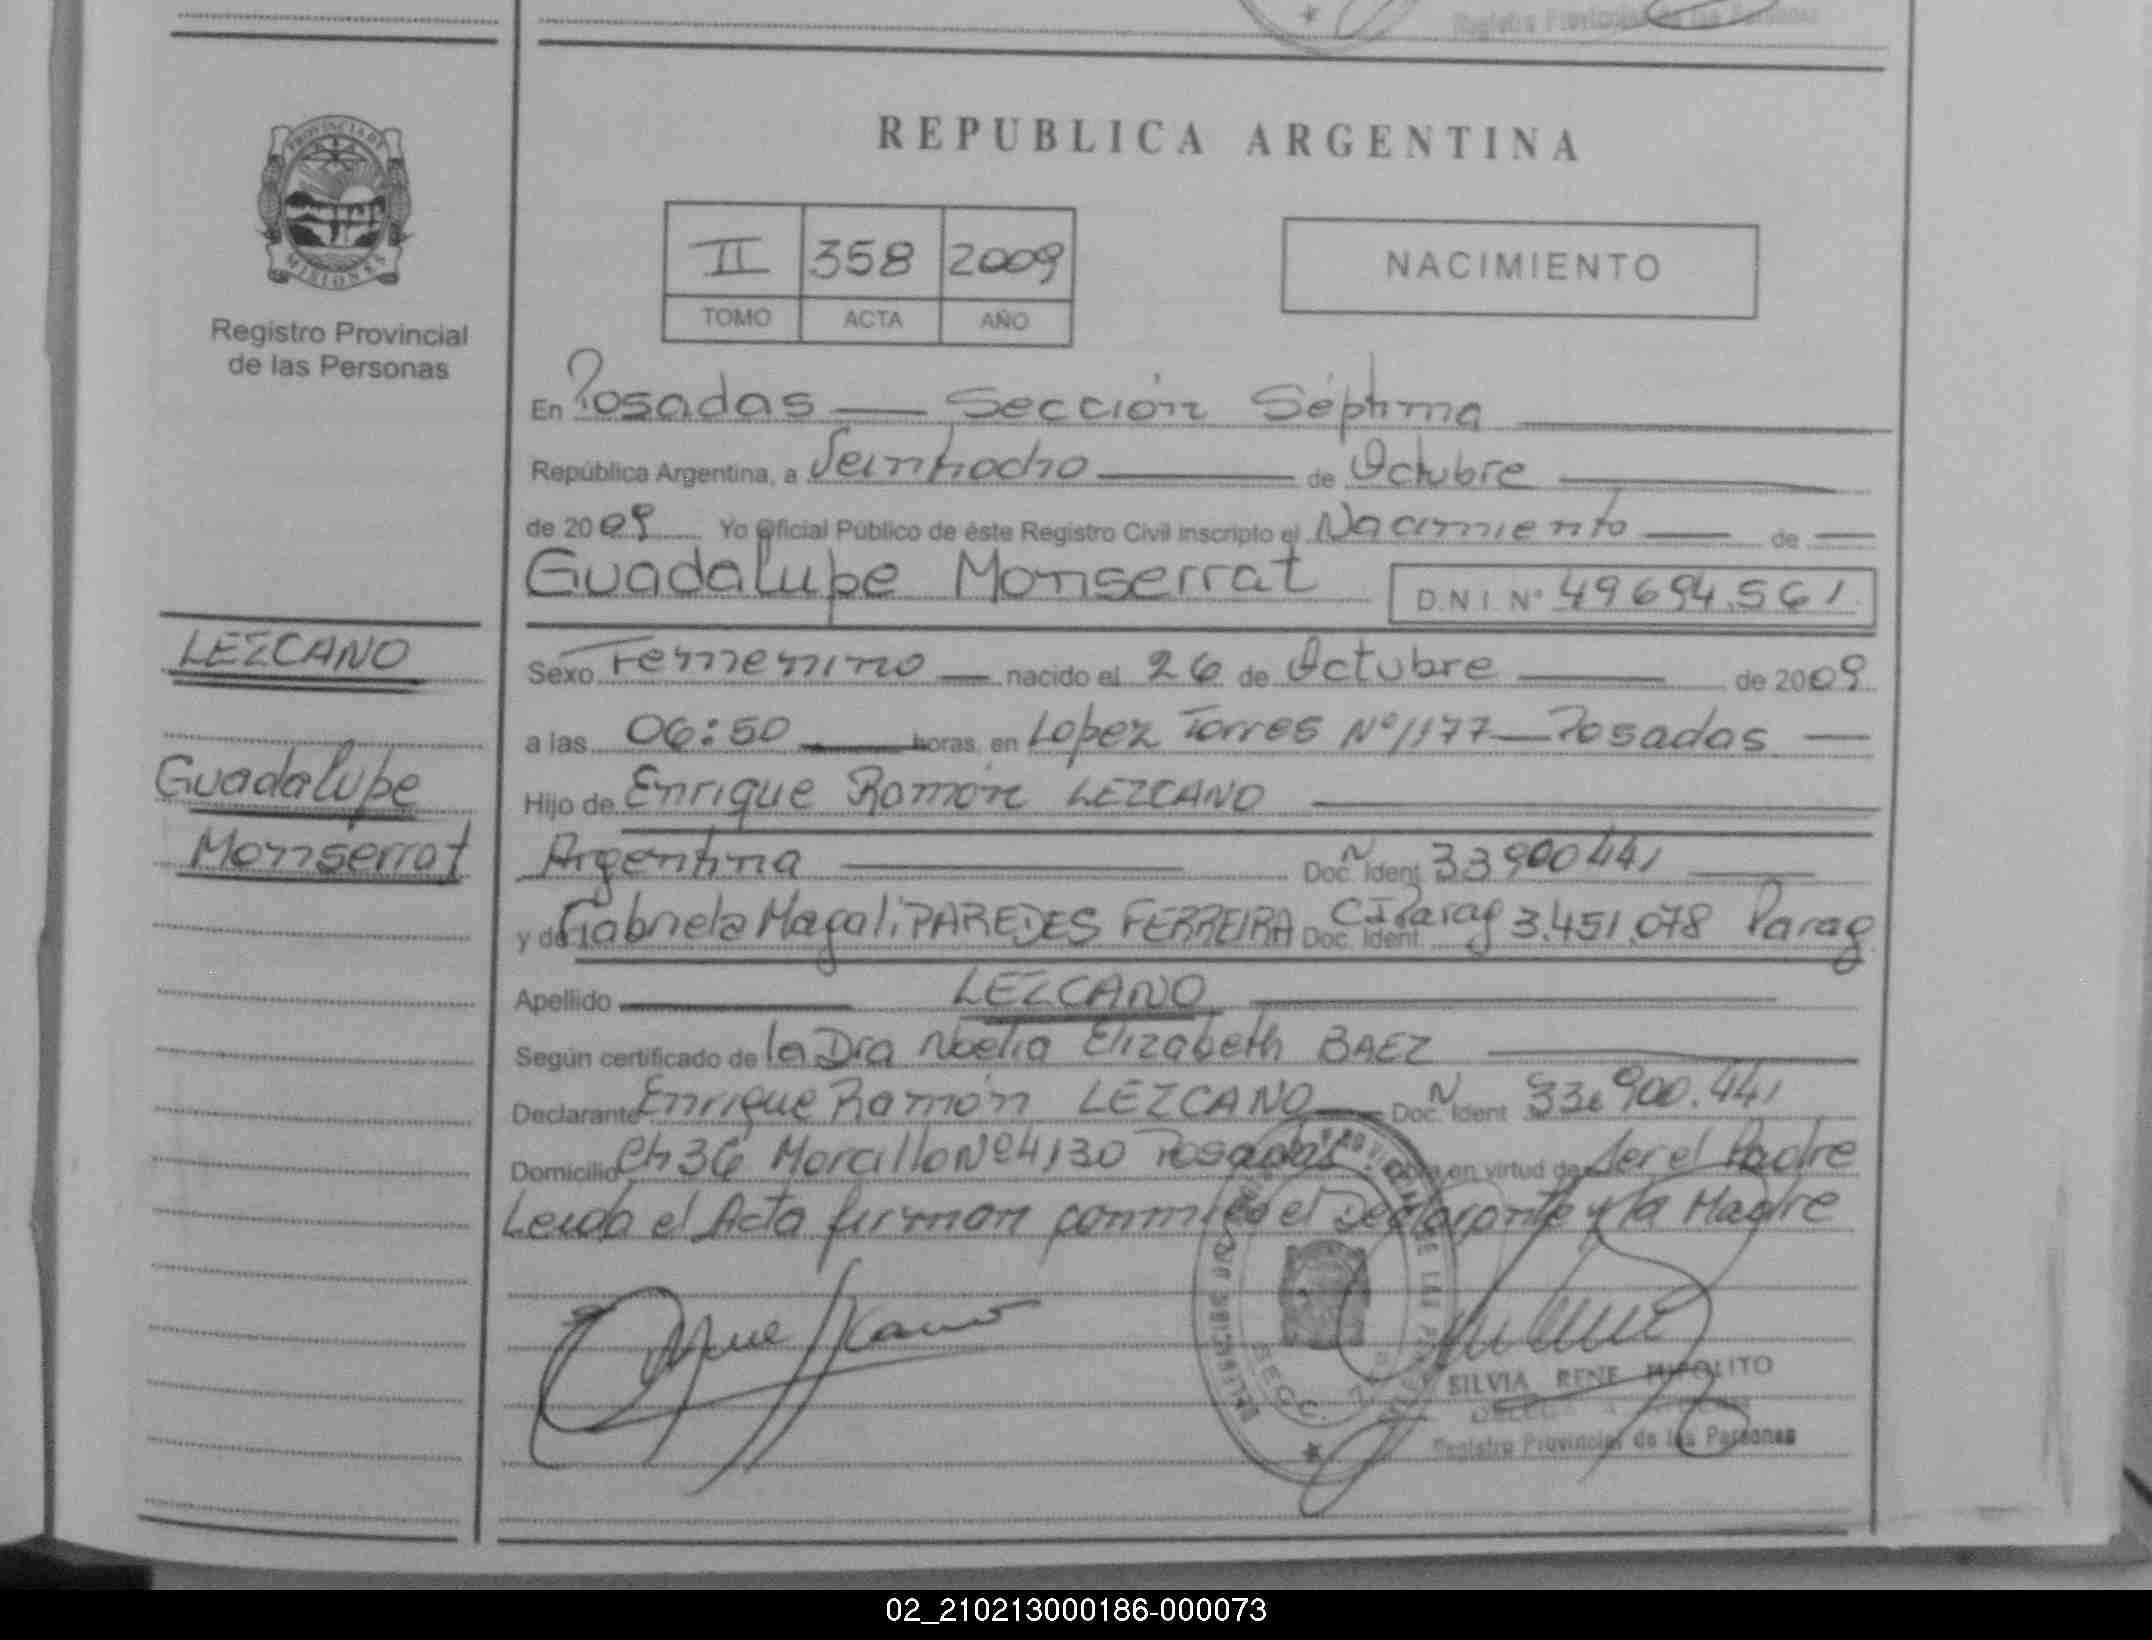 Registro Provincial de las Personas
PROVINCIA DE
MISIONES
Registro Provincial
de las Personas
REPUBLICA ARGENTINA
II 358 2009
TOMO ACTA AÑO
NACIMIENTO
En Posadas — Sección Séptima
República Argentina, a Veintiocho de Octubre
de 2009 Yo Oficial Público de éste Registro Civil inscripto el Nacimiento de
Guadalupe Monserrat D.N.I. Nº 49694.561
LEZCANO
Guadalupe
Monserrat
Sexo Femenino nacido el 26 de Octubre de 2009
a las 06:50 horas, en Lopez Torres Nº 1177 — Posadas
Hijo de Enrique Ramón LEZCANO
Argentina Doc. Ident. N 33900441
y de Gabriela Magali PAREDES FERREIRA Doc. Ident. CI Parag 3.451.078 Parag
Apellido LEZCANO
Según certificado de la Dra Noelia Elizabeth BAEZ
Declarante Enrique Ramón LEZCANO Doc. Ident N 33.900.441
Domicilio Ch 36 Morcillo Nº 4130 Posadas en virtud de ser el Padre
Leida el Acta firman conmigo el Declarante y la Madre
SECC. 7
SILVIA RENE HIPOLITO
Registro Provincial de las Personas
02_210213000186-000073